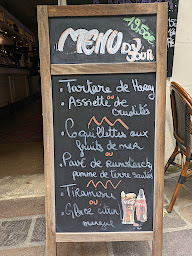 19,50€
MENU DU
JOUR
• Tartare de
ou
• Assiette de
crudités
• Coquillettes aux
fruits de mer
ou
• Pavé de Rumsteack
pomme de terre sautées
• Tiramisu
ou
• Glace citron
meringué